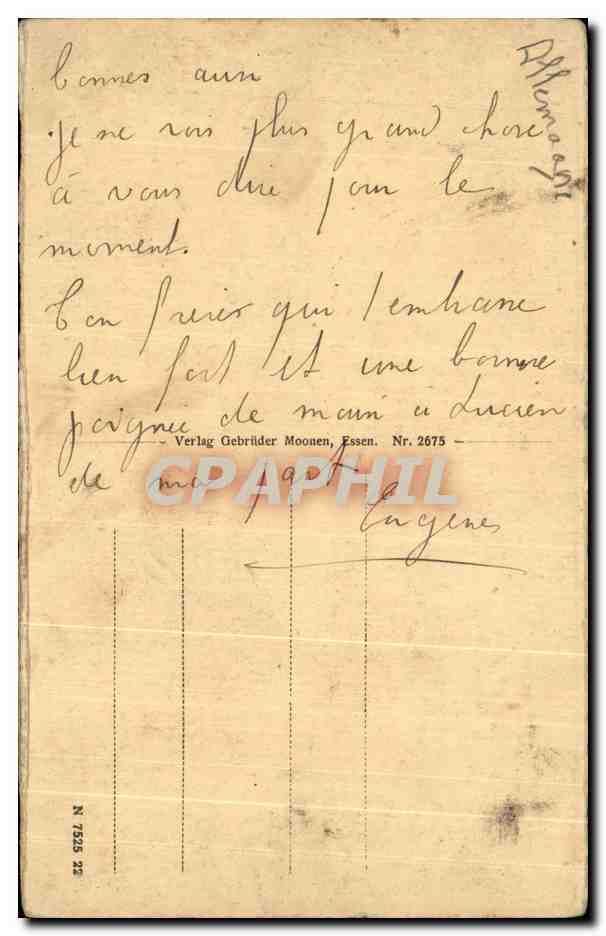 bonnes aussi
Allemagne
je ne vois plus grand chose
à vous dire pour le
moment.
Ton freres qui t'embrasse
bien fort et une bonne
poignée de main a Lucien
Verlag Gebrüder Moonen, Essen. Nr. 2675
de ma part
CPARPHIL
Eugenes
N 7525 22